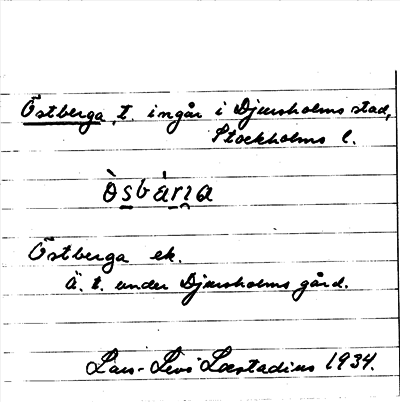 Östberga, t. ingår i Djursholms stad,
Stockholms l.
òsbárıa
Östberga ek.
Ä. t. under Djursholms gård.
Lars-Levi Læstadius 1934.